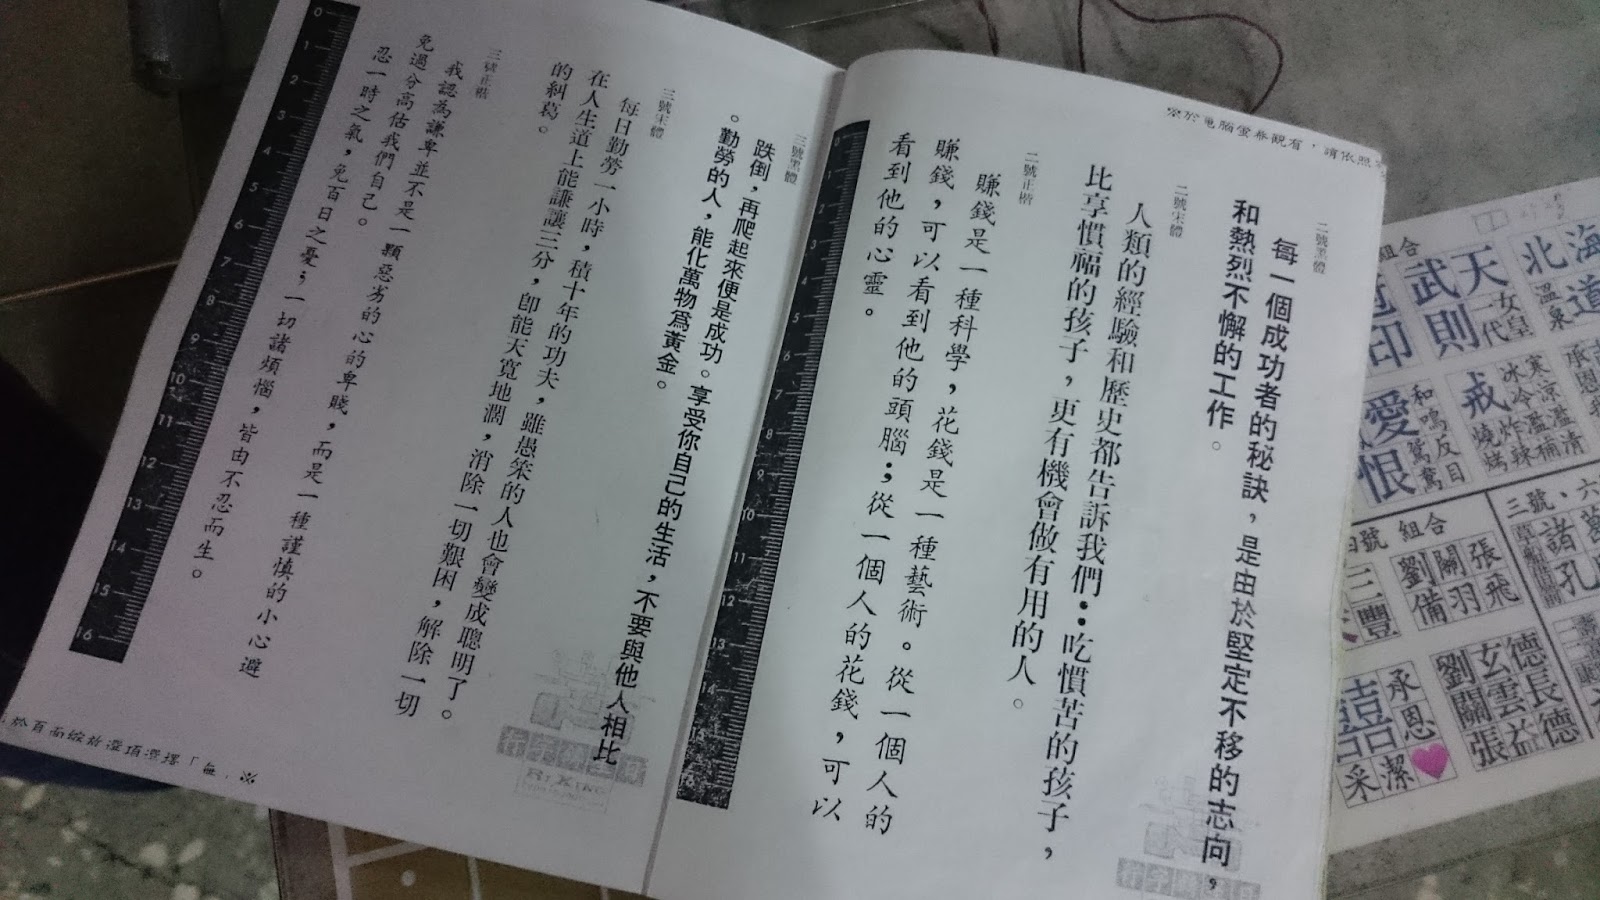 二號黑體
每一個成功者的秘訣，是由於堅定不移的志向，
和熱烈不懈的工作。
二號宋體
人類的經驗和歷史都告訴我們：吃慣苦的孩子，
比享慣福的孩子，更有機會做有用的人。
二號正楷
賺錢是一種科學，花錢是一種藝術。從一個人的
賺錢，可以看到他的頭腦；從一個人的花錢，可以
看到他的心靈。
0 1 2 3 4 5 6 7 8 9 10 11 12 13 14 15 16
三號黑體
跌倒，再爬起來便是成功。享受你自己的生活，不要與他人相比
。勤勞的人，能化萬物為黃金。
三號宋體
每日勤勞一小時，積十年的功夫，雖愚笨的人也會變成聰明了。
在人生道上能謙讓三分，卽能天寬地濶，消除一切艱困，解除一切
的糾葛。
三號正楷
我認為謙卑並不是一顆惡劣的心的卑賤，而是一種謹慎的小心避
免過分高估我們自己。
忍一時之氣，免百日之憂；一切諸煩惱，皆由不忍而生。
0 1 2 3 4 5 6 7 8 9 10 11 12 13 14 15 16
組合
天 武則
一代女皇
北海道
溫泉
愛恨
和鳴 反目
鴛鴦
戒
寒涼 冰冷
炸辣 燒烤
四號 組合
三號、六
張飛
關羽
劉備
三豐
德長德
玄雲益
劉關張
囍
承恩
采潔